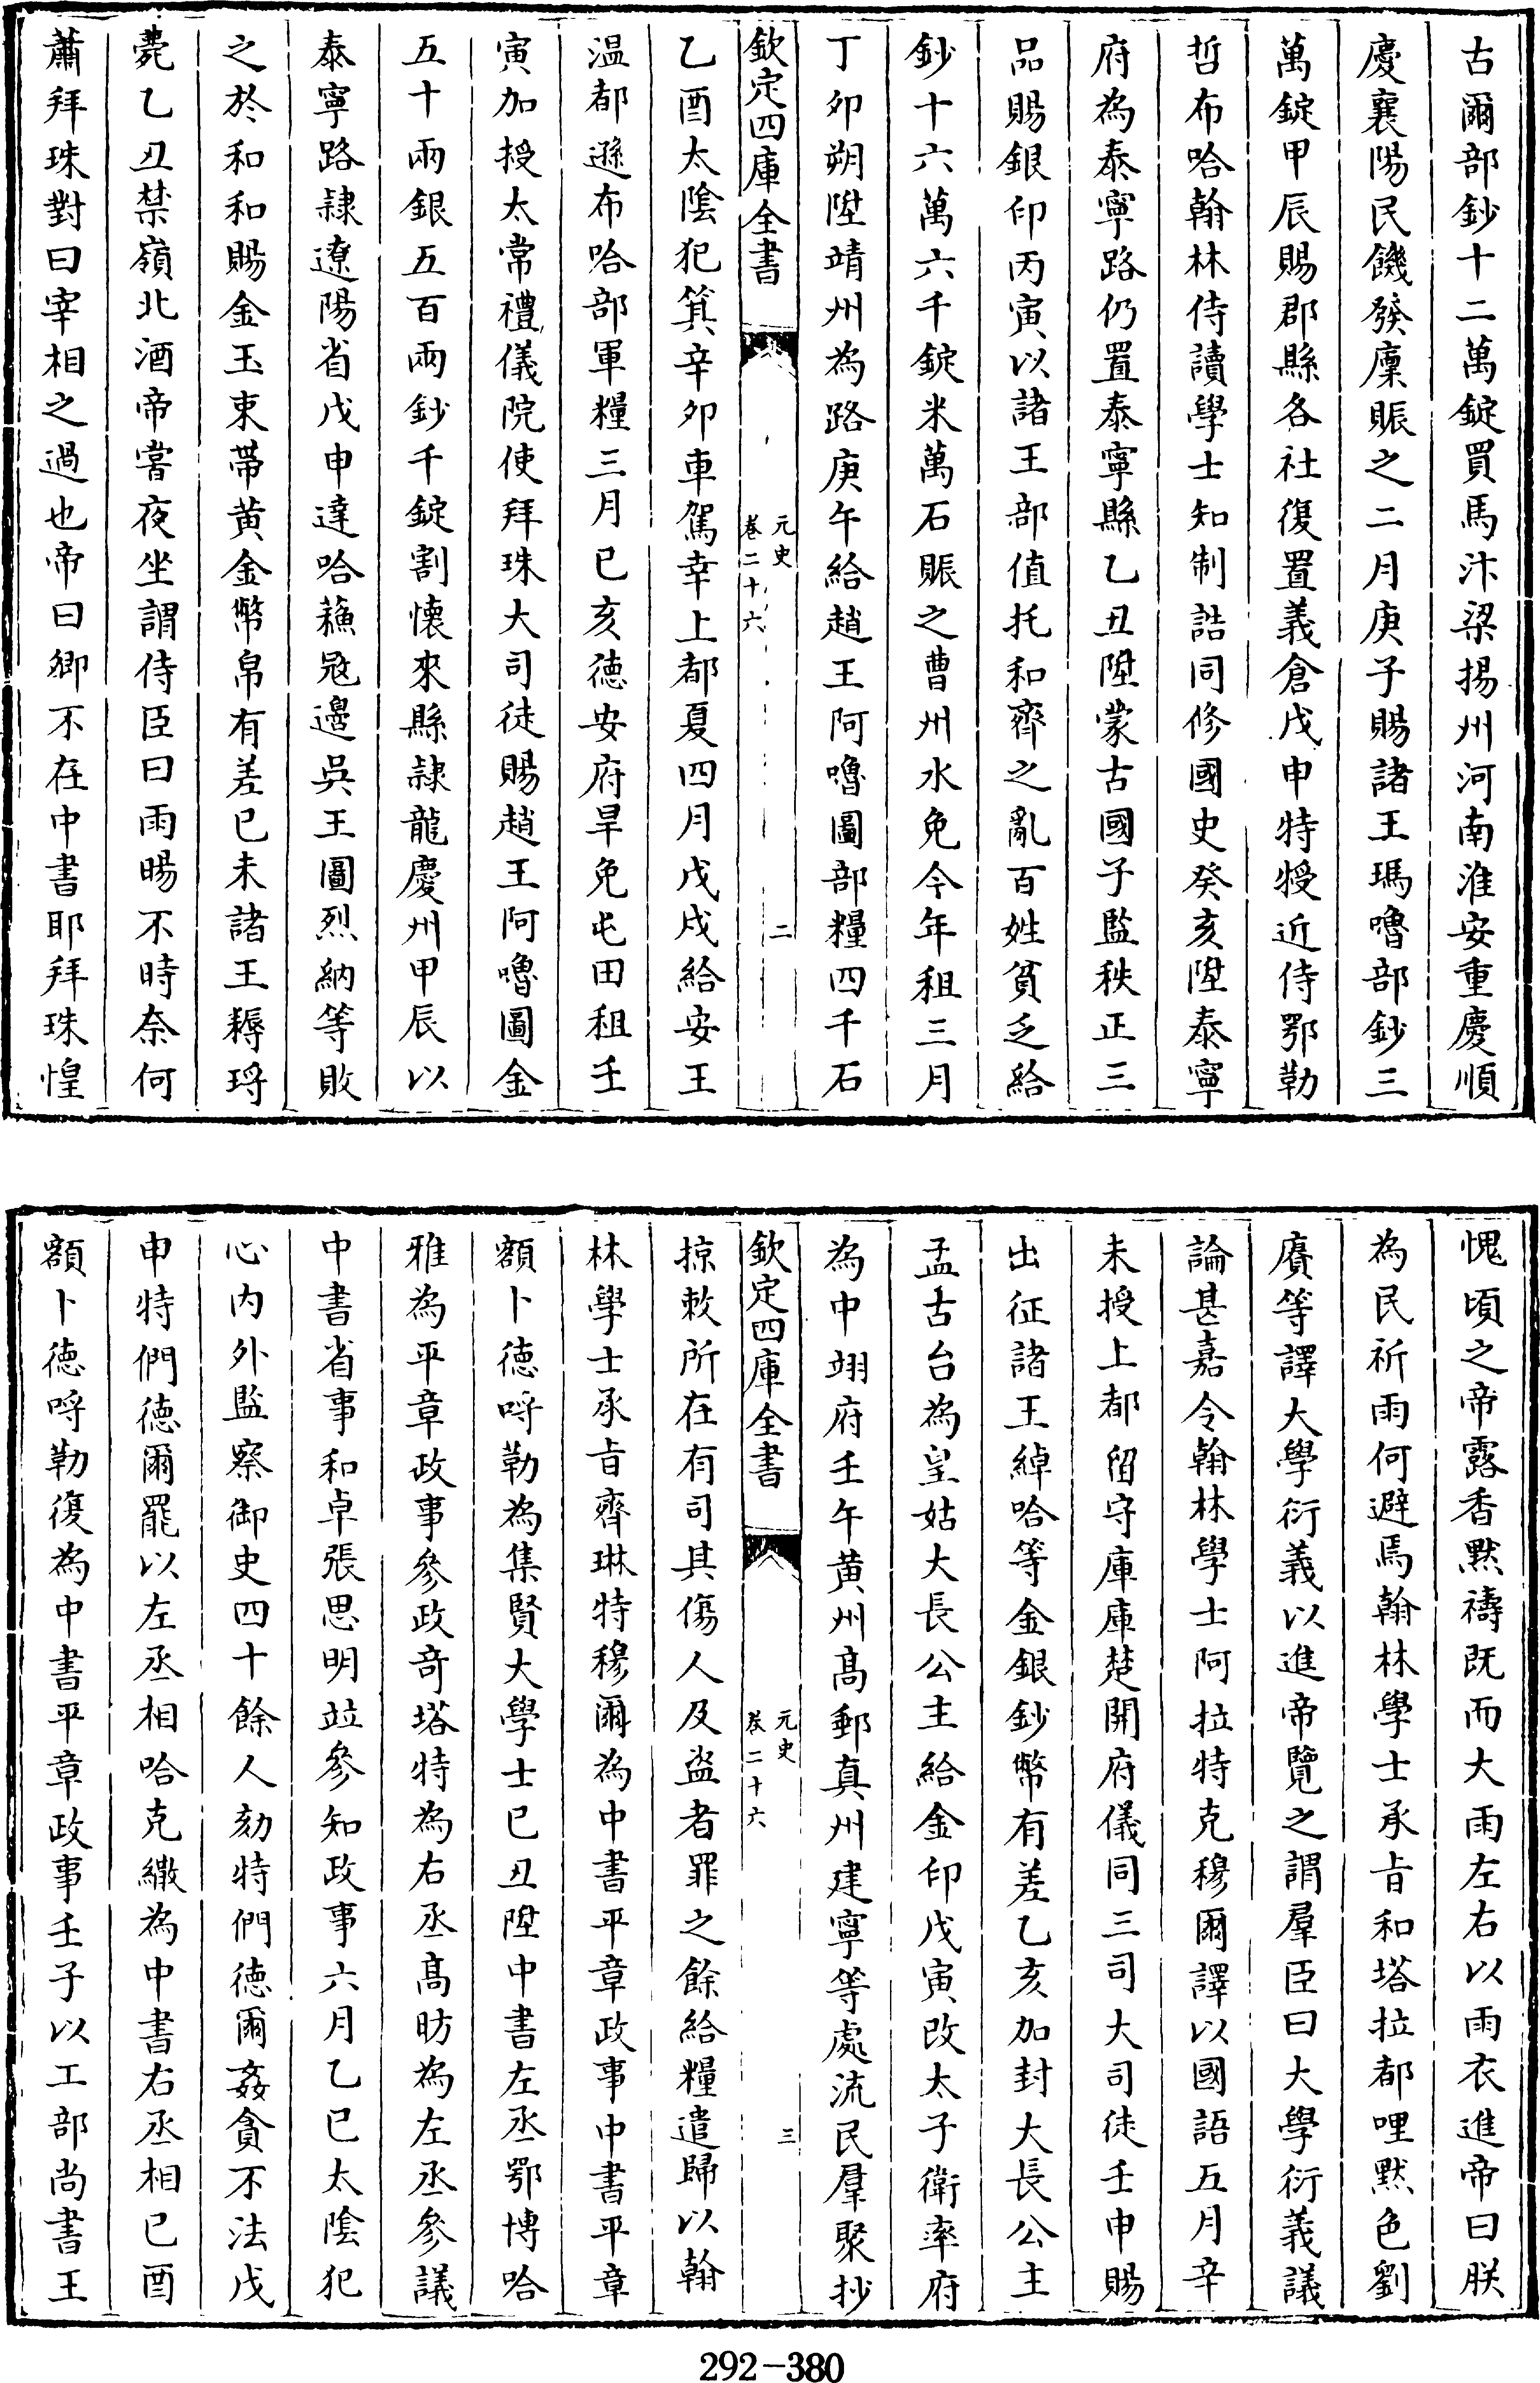 古爾部鈔十二萬錠買馬汴梁揚州河南淮安重慶順
慶襄陽民饑發廩賑之二月庚子賜諸王瑪嚕部鈔三
萬錠甲辰賜郡縣各社復置義倉戊申特授近侍鄂勒
哲布哈翰林侍讀學士知制誥同修國史癸亥陞泰寧
府為泰寧路仍置泰寧縣乙丑陞蒙古國子監秩正三
品賜銀印丙寅以諸王部值托和齊之亂百姓貧乏給
鈔十六萬六千錠米萬石賑之曹州水免今年租三月
丁卯朔陞靖州為路庚午給趙王阿嚕圖部糧四千石
欽定四庫全書
元史
卷二十六
二
乙酉太陰犯箕辛卯車駕幸上都夏四月戊戌給安王
温都遜布哈部軍糧三月已亥德安府旱免屯田租壬
寅加授太常禮儀院使拜珠大司徒賜趙王阿嚕圖金
五十兩銀五百兩鈔千錠割懷來縣隷龍慶州甲辰以
泰寧路隷遼陽省戊申達哈蘓冦邊吳王圖烈納等敗
之於和和賜金玉束帶黄金幣帛有差已未諸王耨埒
薨乙丑禁嶺北酒帝嘗夜坐謂侍臣曰雨暘不時奈何
蕭拜珠對曰宰相之過也帝曰卿不在中書耶拜珠惶
愧頃之帝露香黙禱既而大雨左右以雨衣進帝曰朕
為民祈雨何避焉翰林學士承㫖和塔拉都哩黙色劉
賡等譯大學衍義以進帝覽之謂羣臣曰大學衍義議
論甚嘉令翰林學士阿拉特克穆爾譯以國語五月辛
未授上都留守庫庫楚開府儀同三司大司徒壬申賜
出征諸王綽哈等金銀鈔幣有差乙亥加封大長公主
孟古台為皇姑大長公主給金印戊寅改太子衛率府
為中翊府壬午黄州髙郵真州建寧等處流民羣聚抄
欽定四庫全書
元史
卷二十六
三
掠敕所在有司其傷人及盗者罪之餘給糧遣歸以翰
林學士承㫖齊琳特穆爾為中書平章政事中書平章
額卜德呼勒為集賢大學士已丑陞中書左丞鄂博哈
雅為平章政事參政竒塔特為右丞髙昉為左丞參議
中書省事和卓張思明竝參知政事六月乙巳太陰犯
心内外監察御史四十餘人劾特們德爾姦貪不法戊
申特們德爾罷以左丞相哈克繖為中書右丞相已酉
額卜德呼勒復為中書平章政事壬子以工部尚書王
292-380